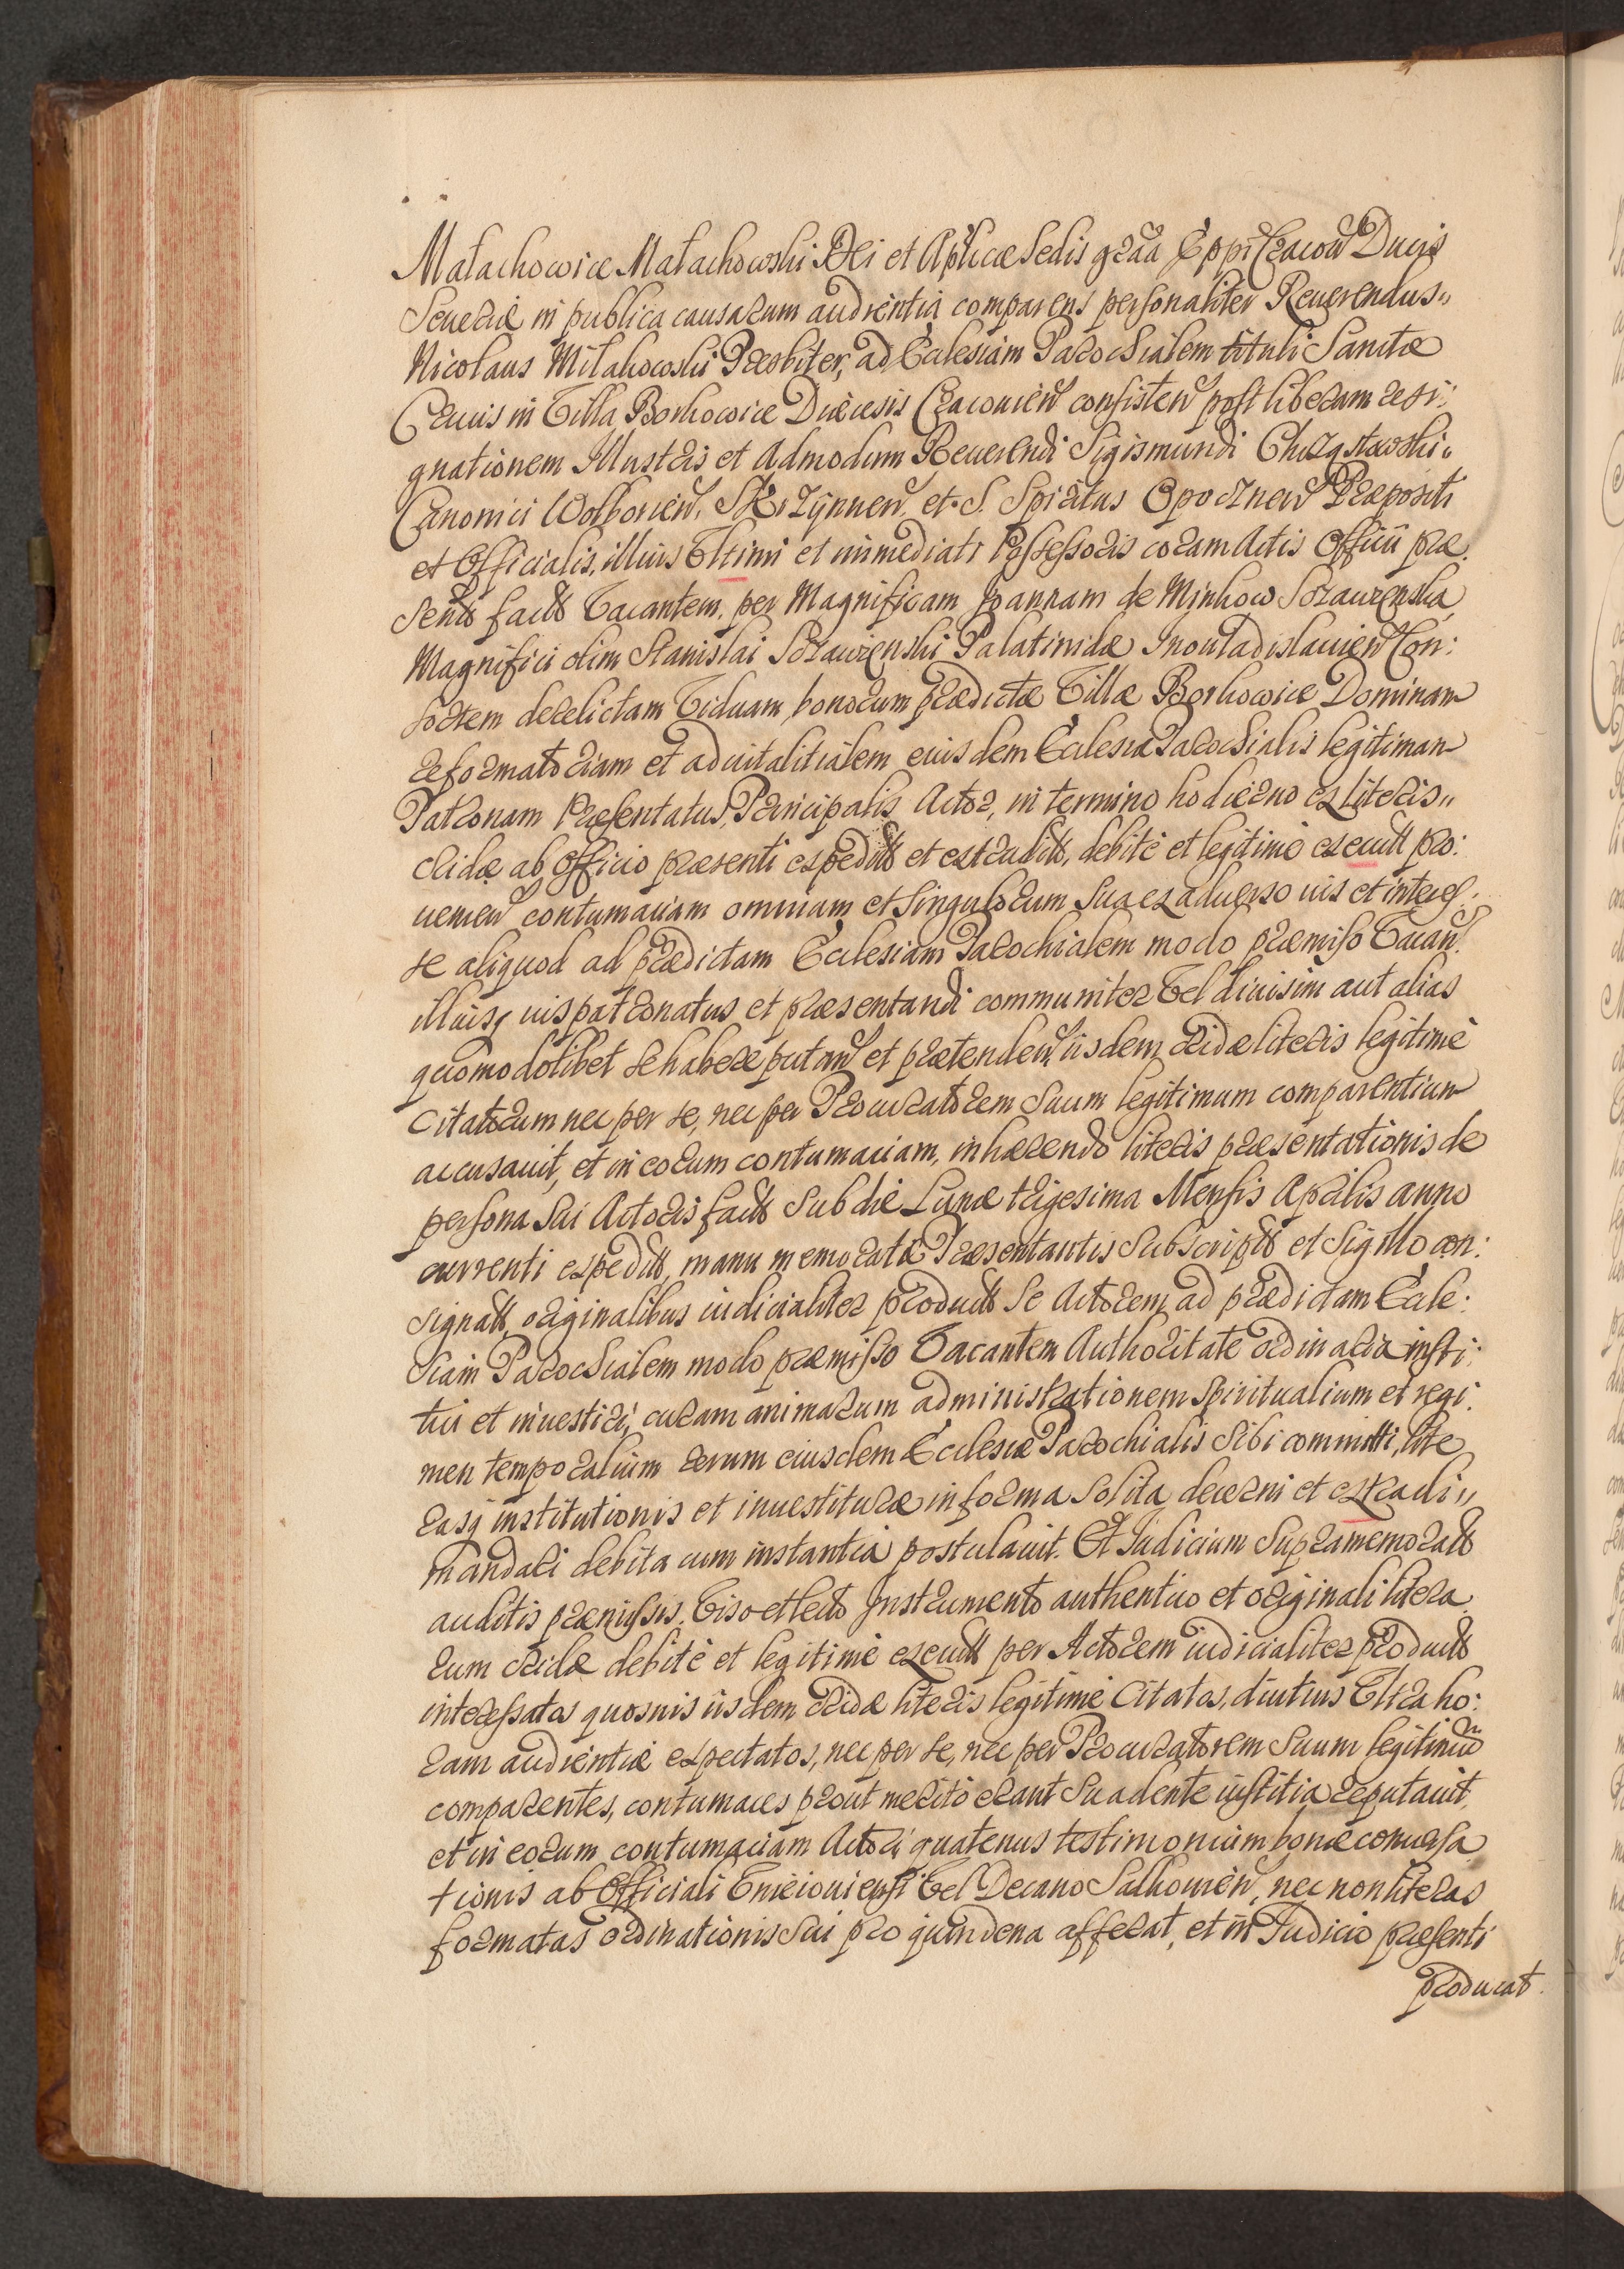 Małachowice Małachowski Dei et Aplicae Sedis graa Eppi Cracow Ducis
Seueriae in publica causarum audientia comparens personaliter Reuerendus
Nicolaus Milakowski Praesbiter, ad Ecclesiam Parochialem tituli Sanctae
Crucis in Villa Borkowice Diaecesis Cracouien consisten post liberam resi:
gnationem Illustris et Admodum Reuerendi Sigismundi Chrząstowski
Canonici Wolborien, Skrzÿnnen et S. Spiritus Opocznen Praepositi
et Officialis, illius Vltimi et immediati Possessoris coram Actis Officii prae.
sentis factam Vacantem, per Magnificam Joannam de Minkow Szawrenska
Magnifici olim Stanislai Szawrenski Palatinidae Inouladislauien Con:
sortem derelictam Viduam, bonorum praedictae Villae Borkowice Dominam
reformatoriam et aduitalitialem eiusdem Ecclesiae Parochialis legitimam
Patronam Praesentatus, Principalis Actor, in termino hodierno ex literis
cridae ab Officio praesenti expeditis et extraditis, debite et legitime executis pro:
uenien contumaciam omnium et singulorum sua ex aduerso ius et interes:
se aliquod ad praedictam Ecclesiam Parochialem modo praemisso Vacan
illiusq ius patronatus et praesentandi communiter Vel diuisim aut alias
quomodolibet se habere putan et praetenden iisdem cridae literis legitime
citatorum nec per se, nec per Procuratorem suum legitimum comparentium
accusauit, et in eorum contumaciam, inhaerendo literis praesentationis de
persona sui Actoris factis sub die Lunae trigesima Mensis Aprilis anno
currenti expeditis, manu memoratae Praesentantis subscriptis et sigillo con:
signatis, originalibus iudicialiter productis se Actorem ad praedictam Eccle:
siam Parochialem modo praemisso Vacantem Authoritate ordinaria insti:
tui et inuestiri, curam animarum administrationem spiritualium et regi:
men temporalium rerum eiusdem Ecclesiae Parochialis sibi committi, lite
rasq institutionis et inuestiturae in forma solita decerni et extradi
mandari debita cum instantia postulauit. Et Iudicium supramemoratum
auditis praemissis. Viso et lecto Instrumento authentico et originali litera
rum cridae debite et legitime executis per Actorem iudicialiter producto
interessatos quosuis iisdem cridae literis legitime Citatos, diutius Vltra ho:
ram audientiae expectatos, nec per se, nec per Procuratorem suum legitimu
comparentes, contumaces prout merito erant suadente iustitia reputauit,
et in eorum contumaciam Actori quatenus testimonium bonae conuersa
tionis ab Officiali Vneiouiensi Vel Decano Salkouien, nec non literas
formatas ordinationis sui pro quindena afferat, et in Iudicio praesenti
producat.